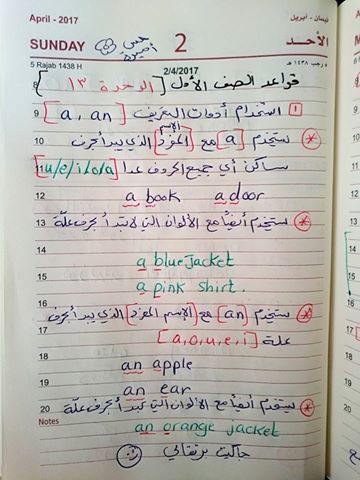 April - 2017
نيسان - أبريل
SUNDAY
2
الأحد
5 Rajab 1438 H
2/4/2017
٥ رجب ١٤٣٨ هـ
8
قواعد الصف الأول [الوحدة ١٣]
9
1 استخدام أدوات التعريف [a, an]
الإسم
10 * نستخدم [a] مع [المفرد] الذي يبدأ بحرف
11 ساكن أي جميع الحروف عدا [u/e/i/o/a]
12 a book a door
13 * نستخدم أيضاً مع الألوان التي لا تبدأ بحرف علّة
14 a blue jacket
15 a pink shirt.
16 * نستخدم [an] مع [الإسم المفرد] الذي يبدأ بحرف
17 علة [a, o, u, e, i]
18 an apple
19 an ear
20 * نستخدم أيضاً مع الألوان التي تبدأ بحرف علّة
Notes an orange jacket
جاكت برتقالي